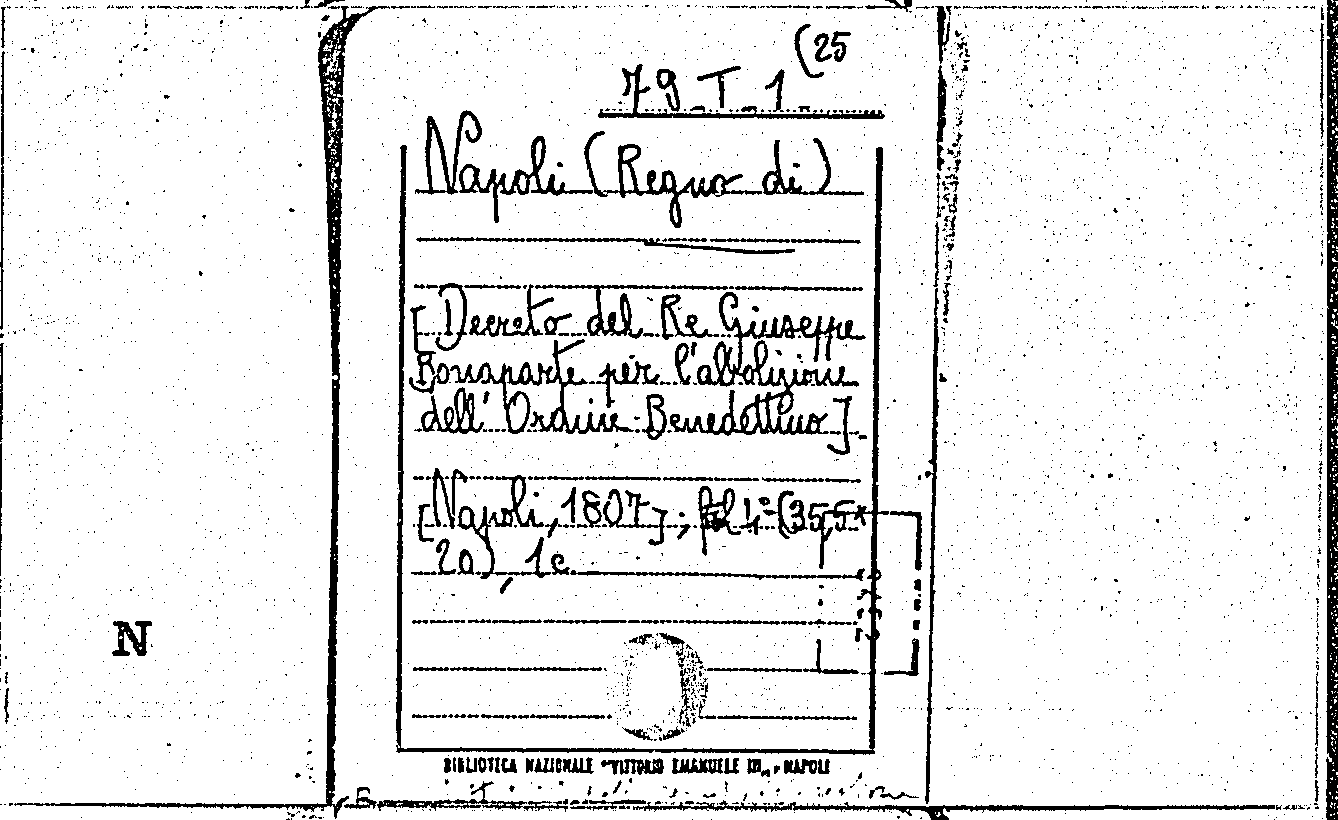 79.T.1 (25
Napoli (Regno di)
[Decreto del Re Giuseppe
Bonaparte per l'abolizione
dell'Ordine Benedettino].
[Napoli, 1807]; 4° (35,5x
20), 1c.
N
BIBLIOTECA NAZIONALE "VITTORIO EMANUELE III" - NAPOLI